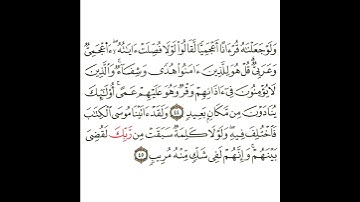 وَلَوْ جَعَلْنَـٰهُ قُرْءَانًا أَعْجَمِيًّا لَّقَالُوا۟ لَوْلَا فُصِّلَتْ ءَايَـٰتُهُۥٓ ۖ ءَا۬عْجَمِىٌّ
وَعَرَبِىٌّ ۗ قُلْ هُوَ لِلَّذِينَ ءَامَنُوا۟ هُدًى وَشِفَآءٌ ۖ وَٱلَّذِينَ
لَا يُؤْمِنُونَ فِىٓ ءَاذَانِهِمْ وَقْرٌ وَهُوَ عَلَيْهِمْ عَمًى ۚ أُو۟لَـٰٓئِكَ
يُنَادَوْنَ مِن مَّكَانٍۭ بَعِيدٍ ٤٤ وَلَقَدْ ءَاتَيْنَا مُوسَى ٱلْكِتَـٰبَ
فَٱخْتُلِفَ فِيهِ ۗ وَلَوْلَا كَلِمَةٌ سَبَقَتْ مِن رَّبِّكَ لَقُضِىَ
بَيْنَهُمْ ۚ وَإِنَّهُمْ لَفِى شَكٍّ مِّنْهُ مُرِيبٍ ٤٥